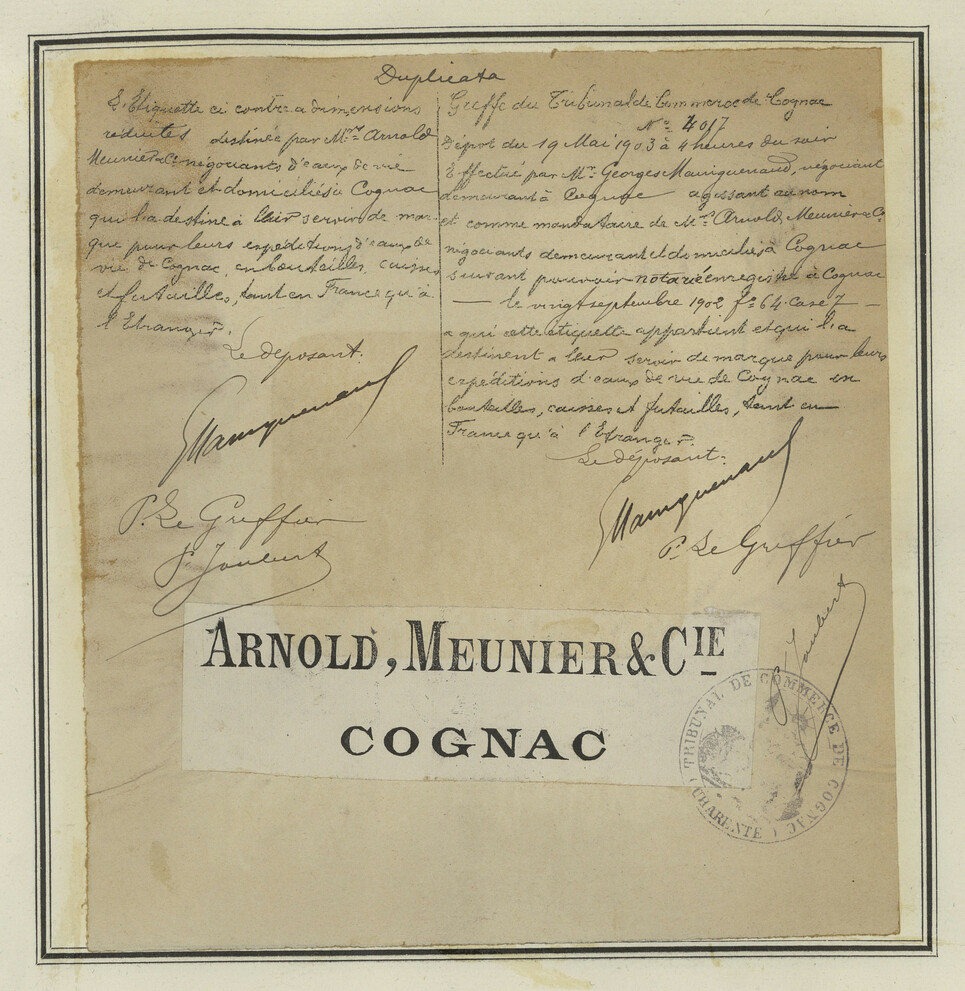 Duplicata
L'Etiquette ci contre a dimensions
réduites destinée par Mrs Arnold
Meunier & Cie négociants d'eaux de vie
demeurant et domiciliés à Cognac
qui l'a destine à leur servir de mar-
que pour leurs expéditions d'eaux de
vie de Cognac, en bouteilles, caisses
et futailles, tant en France qu'à
l'Etranger.
Le déposant:
P. Le Greffier
P. Joubert
Greffe du Tribunal de Commerce de Cognac
No 4017
Dépot du 19 Mai 1903 à 4 heures du soir
Effectué par Mr Georges Mainguenaud, négociant
demeurant à Cognac agissant au nom
et comme mandataire de Mrs Arnold, Meunier & Cie
négociants demeurant et domiciliés à Cognac
suivant pouvoir notarié enregistré à Cognac
— le vingt septembre 1902 fo 64. Case 7 —
a qui cette étiquette appartient et qui l'a
destinent a leur servir de marque pour leurs
expéditions d'eaux de vie de Cognac en
bouteilles, caisses et futailles, tant en
France qu'à l'Etranger.
Le déposant:
Mainguenaud
P. Le Greffier
P. Joubert
ARNOLD, MEUNIER & CIE
COGNAC
TRIBUNAL DE COMMERCE DE COGNAC
(CHARENTE)